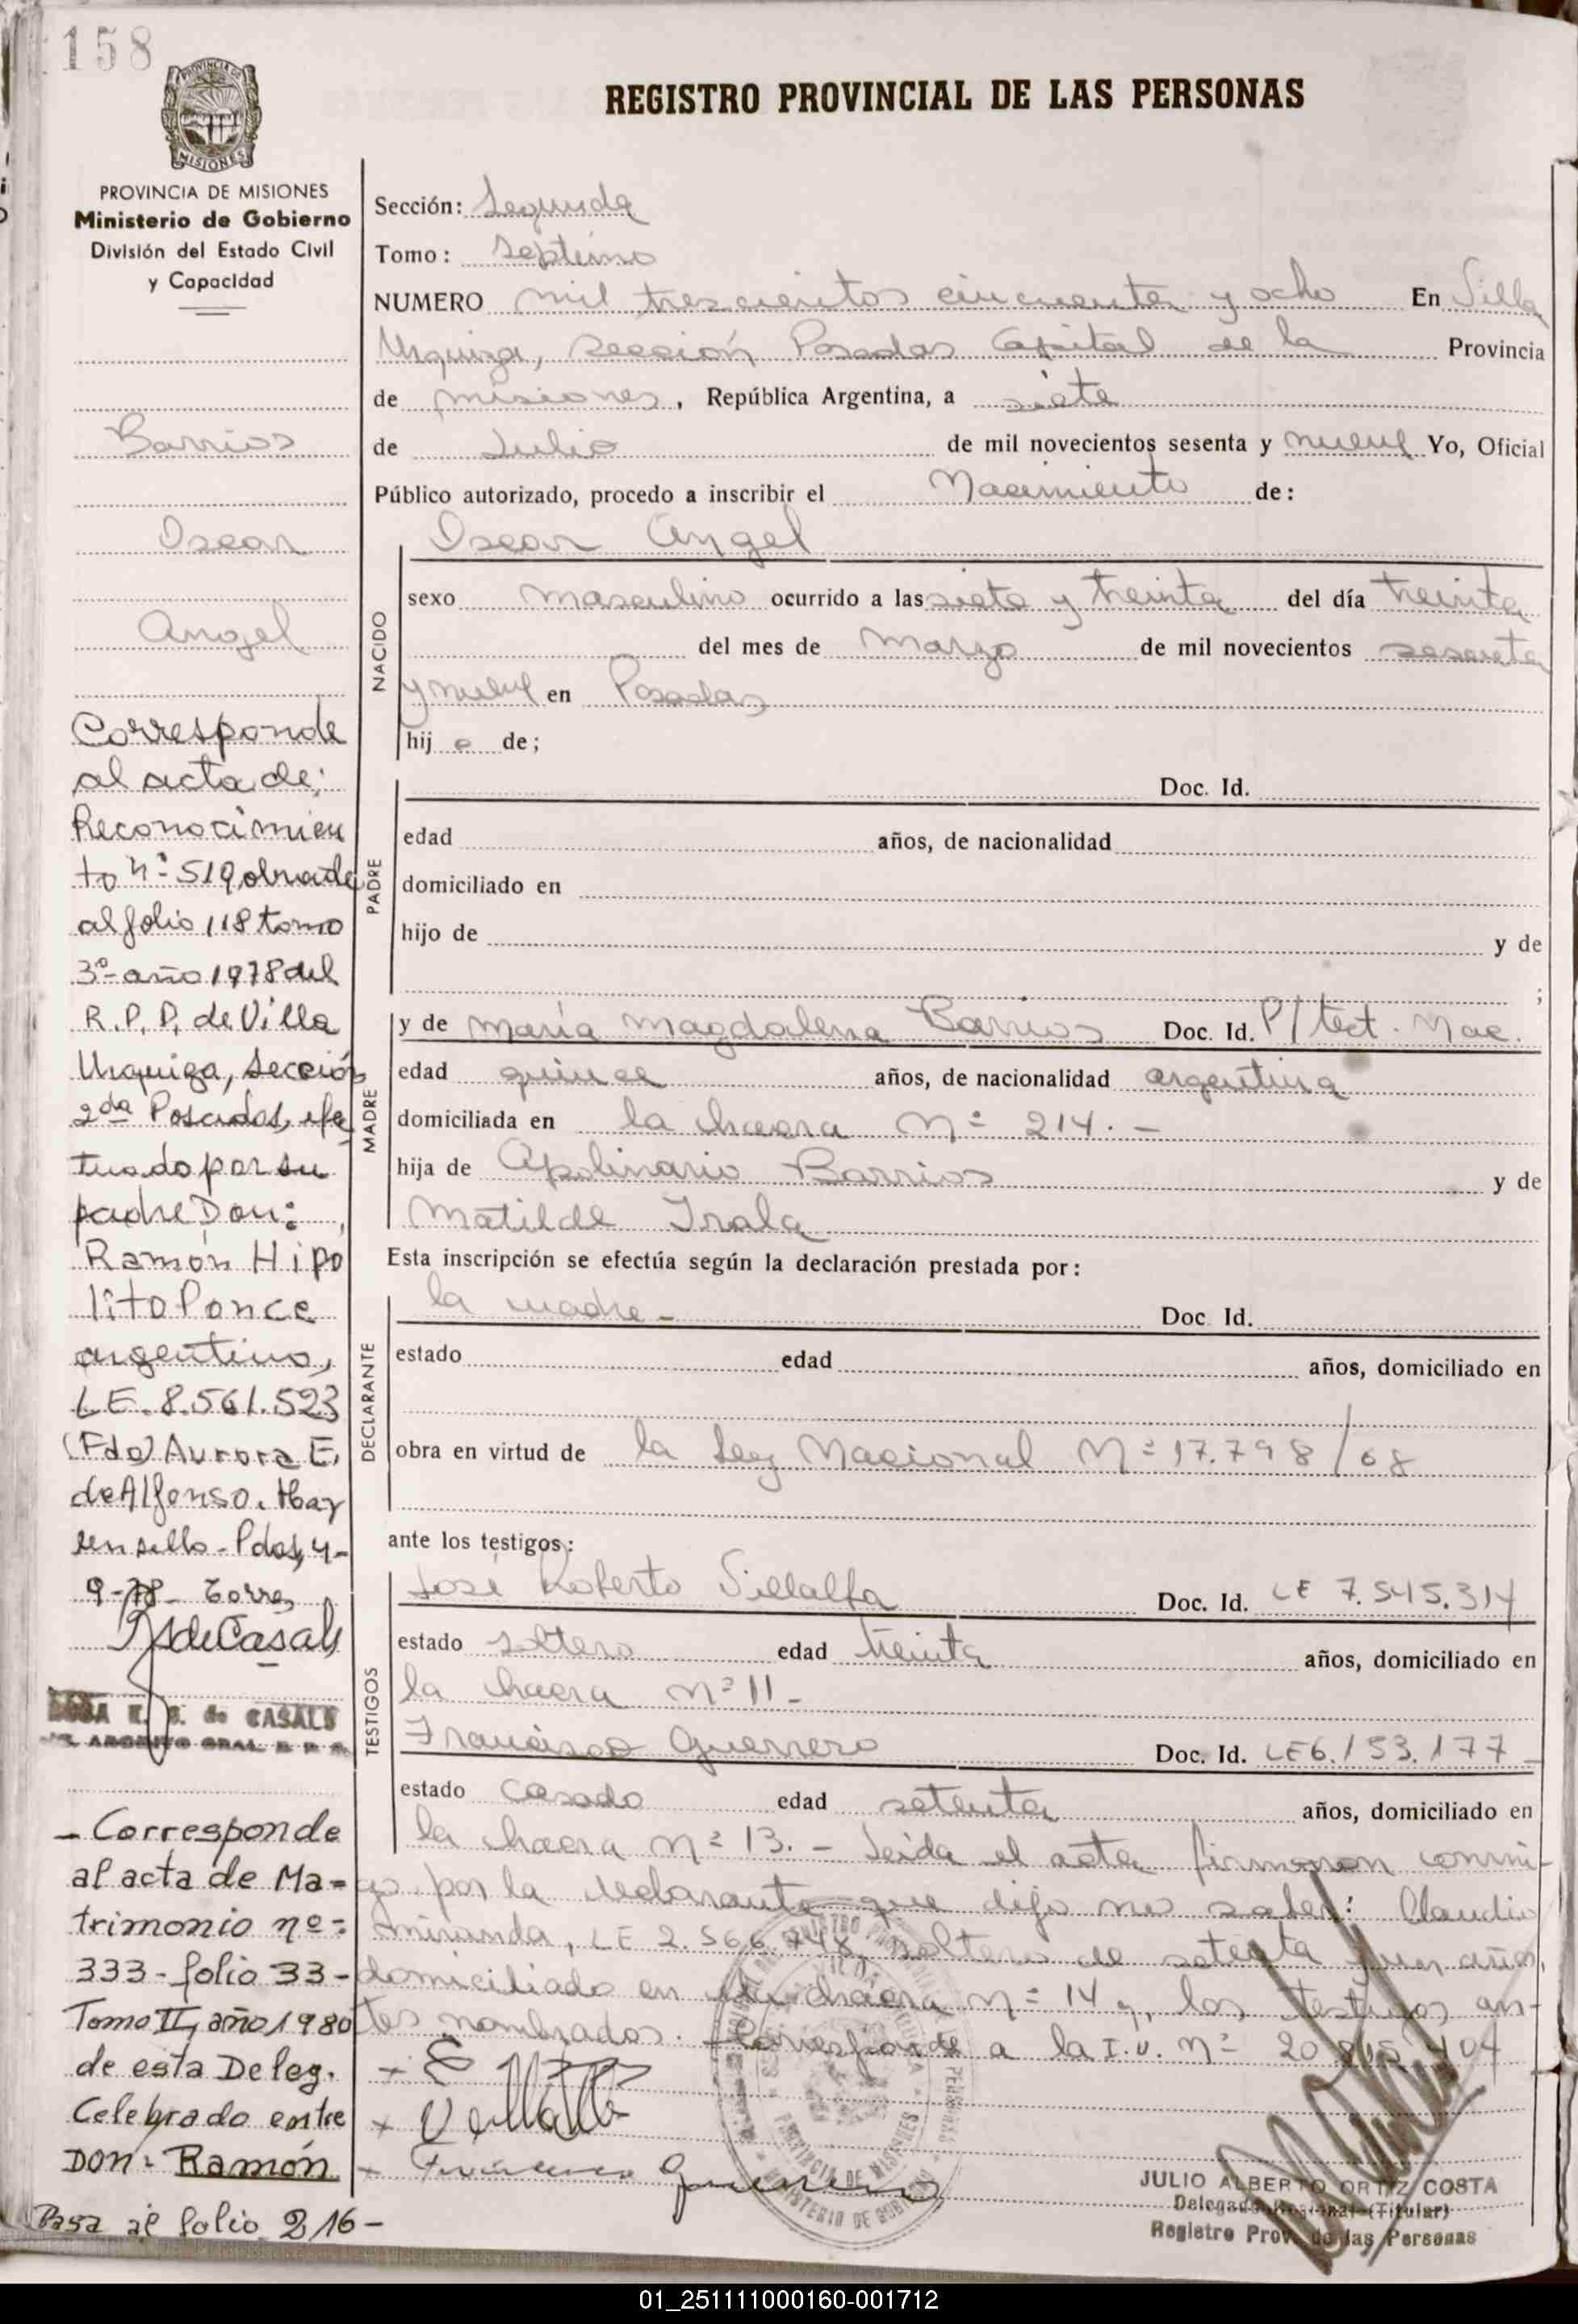 158
REGISTRO PROVINCIAL DE LAS PERSONAS
PROVINCIA DE MISIONES
MISIONES
PROVINCIA DE MISIONES
Ministerio de Gobierno
División del Estado Civil
y Capacidad
Barrios
Oscar
Angel
Corresponde
al acta de;
Reconocimien
to nº 519 obrade
al folio 118 tomo
3º año 1978 del
R.P.P. de Villa
Urquiza, sección
2da Posadas, efe
tuado por su
padre Don:
Ramón Hipo
lito Ponce
argentino,
LE. 8.561.523
(Fdo) Aurora E.
de Alfonso. Hay
un sello - Pdas, 4-
9-78 - Torres
de Casals
E. S. de CASALS
- Corresponde
al acta de Ma=
trimonio nº=
333 - folio 33 -
Tomo II, año 1980
de esta Deleg.
Celebrado entre
DON= Ramón
Pasa al folio 216 -
Sección: Segunda
Tomo: septimo
NUMERO mil trescientos cincuenta y ocho En Villa
Urquiza, sección Posadas Capital de la Provincia
de Misiones, República Argentina, a siete
de Julio de mil novecientos sesenta y nueve Yo, Oficial
Público autorizado, procedo a inscribir el Nacimiento de:
NACIDO
Oscar Angel
sexo masculino ocurrido a las siete y treinta del día treinta
del mes de Marzo de mil novecientos sesenta
y nueve en Posadas
hij o de;
PADRE
Doc. Id.
edad años, de nacionalidad
domiciliado en
hijo de y de
;
MADRE
y de María Magdalena Barrios Doc. Id. P/ test. Nac.
edad quince años, de nacionalidad argentina
domiciliada en la chacra Nº 214. -
hija de Apolinario Barrios y de
Matilde Irala
Esta inscripción se efectúa según la declaración prestada por:
DECLARANTE
la madre - Doc. Id.
estado edad años, domiciliado en
obra en virtud de la Ley Nacional Nº 17.798/68
ante los testigos:
TESTIGOS
José Roberto Villalba Doc. Id. LE 7.545.314
estado soltero edad treinta años, domiciliado en
la chacra nº 11 -
Francisco Guerrero Doc. Id. LE 6.153.177 -
estado casado edad setenta años, domiciliado en
la chacra nº 13. - Leída el acta firmaron conmi-
go por la declarante que dijo no saber: Claudio
Miranda, LE 2.566.748, soltero de setenta y un años,
domiciliado en la chacra nº 14 y, los testigos an-
tes nombrados. - Corresponde a la I.U. nº 20 404
Francisco Guerrero
JULIO ALBERTO ORTIZ COSTA
Delegado Regional (Titular)
Registro Prov. de las Personas
01_251111000160-001712